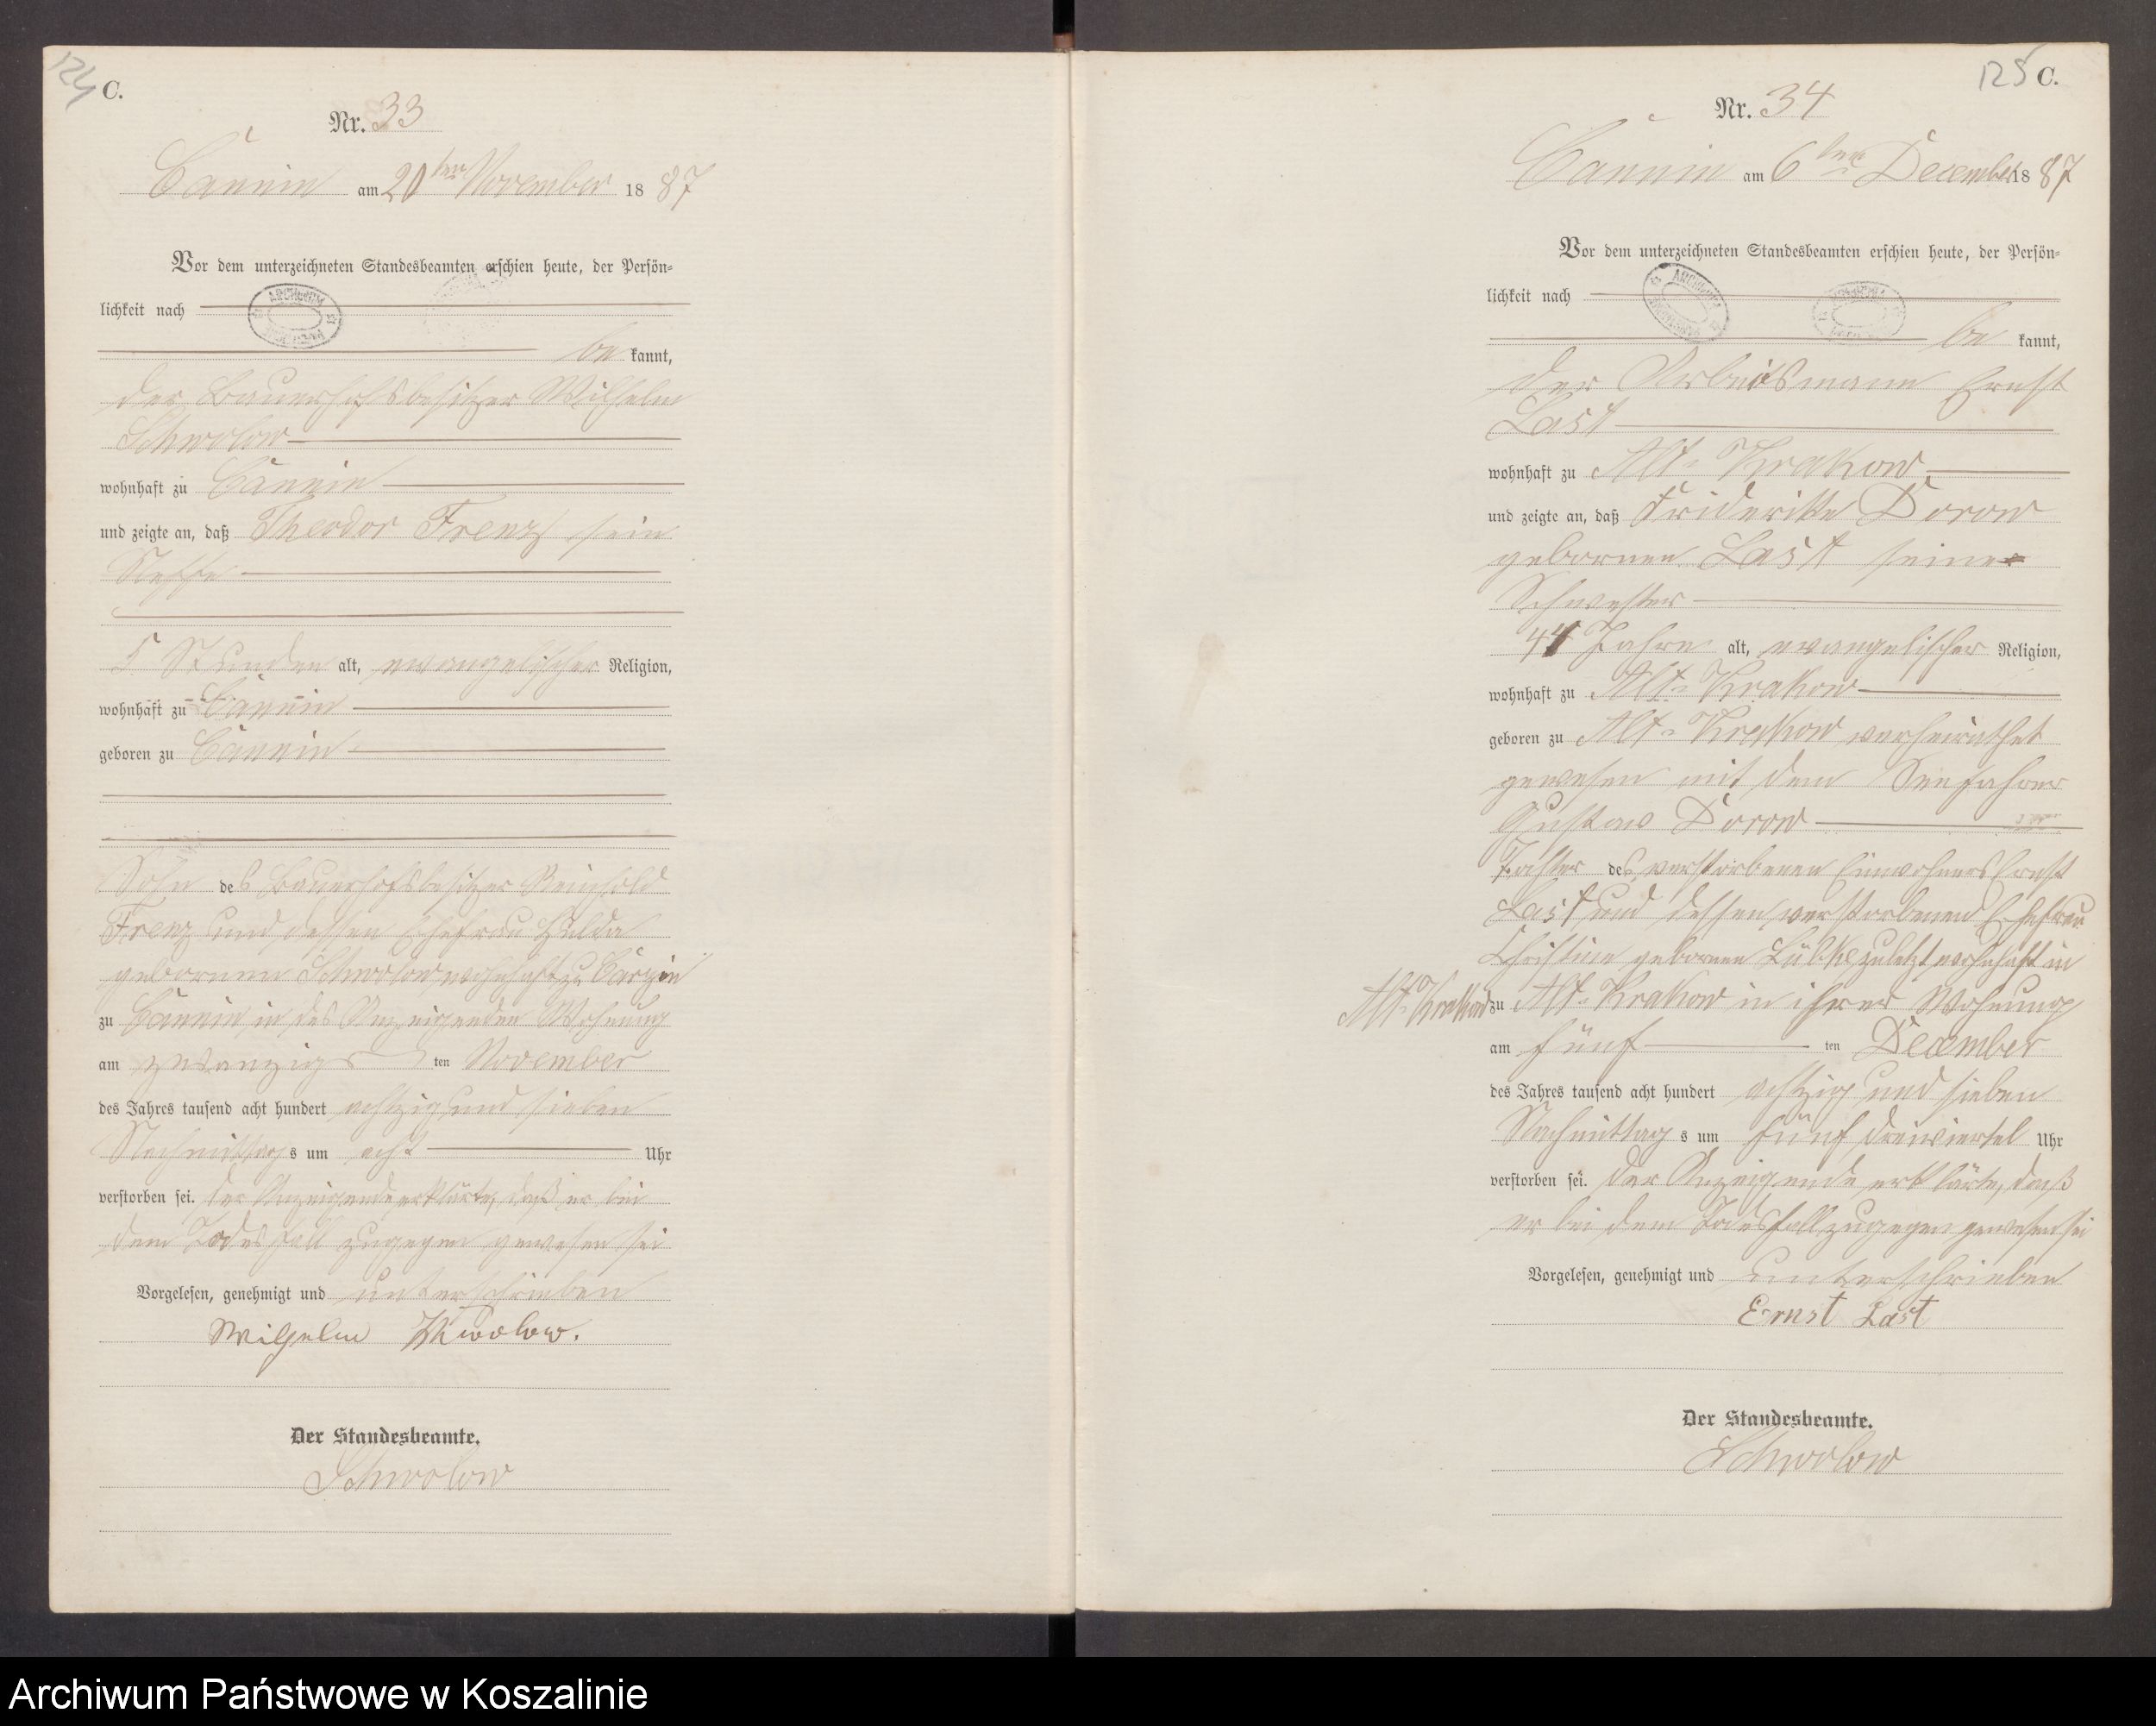 124
C.
Nr. 33
Cannin am 20ten November 1887
Vor dem unterzeichneten Standesbeamten erschien heute, der Persön-
lichkeit nach
be kannt,
der Bauerhofsbesitzer Wilhelm
Schwolow
wohnhaft zu Cannin
und zeigte an, daß Theodor Frenz sein
Neffe
5 Stunden alt, evangelischer Religion,
wohnhaft zu Cannin
geboren zu Cannin
Sohn des Bauerhofsbesitzer Reinhold
Frenz und dessen Ehefrau Hulda
gebornen Schwolow wohnhaft zu
zu Cannin in des Anzeigenden Wohnung
am zwanzigs ten November
des Jahres tausend acht hundert achtzig und sieben
Nachmittags um acht Uhr
verstorben sei. Der Anzeigende erklärte, daß er bei
dem Todesfall zugegen gewesen sei
Vorgelesen, genehmigt und unterschrieben
Wilhelm Schwolow.
Der Standesbeamte.
Schwolow
125
C.
Nr. 34
Cannin am 6ten December 1887
Vor dem unterzeichneten Standesbeamten erschien heute, der Persön-
lichkeit nach
be kannt,
der Arbeitsmann Ernst
Last
wohnhaft zu Alt-Krakow
und zeigte an, daß Friderikke Dorow
gebornen Last seine
Schwester
Jahre alt, evangelischer Religion,
wohnhaft zu Alt-Krakow
geboren zu Alt-Krakow verheirathet
gewesen mit dem Seefahrer
Gustav Dorow
Tochter des verstorbenen Einwohners Ernst
Last und dessen verstorbenen Ehefrau
Christine gebornen Lübke zuletzt wohnhaft in
Alt-Krakow zu Alt-Krakow in ihrer Wohnung
am fünf ten December
des Jahres tausend acht hundert achtzig und sieben
Nachmittags um fünf dreiviertel Uhr
verstorben sei. Der Anzeigende erklärte, daß
er bei dem Todesfall zugegen gewesen sei
Vorgelesen, genehmigt und unterschrieben
Ernst Last
Der Standesbeamte.
Schwolow
Archiwum Państwowe w Koszalinie